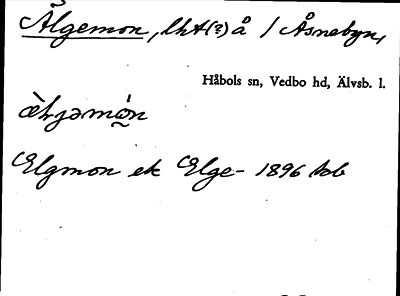 Älgemon, lht(?) å / Åsnebyn,
Håbols sn, Vedbo hd, Älvsb. l.
Elgmon ek Elge- 1896 tob